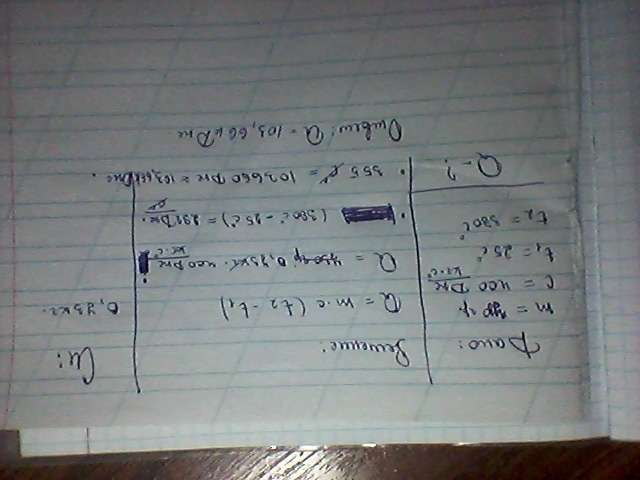 Дано:
m = 730 гр.
c = 400 Дж/кг·c°
t₁ = 25 c°
t₂ = 380 c°
Q - ?
Решение:
Q = m·c (t₂ - t₁)
Q = 0,73кг · 400 Дж/кг·c° ·
· (380c° - 25c°) = 292 Дж/c° ·
· 355 c° = 103660 Дж = 103,66кДж.
Ответ: Q = 103,66 кДж
Си:
0,73 кг.